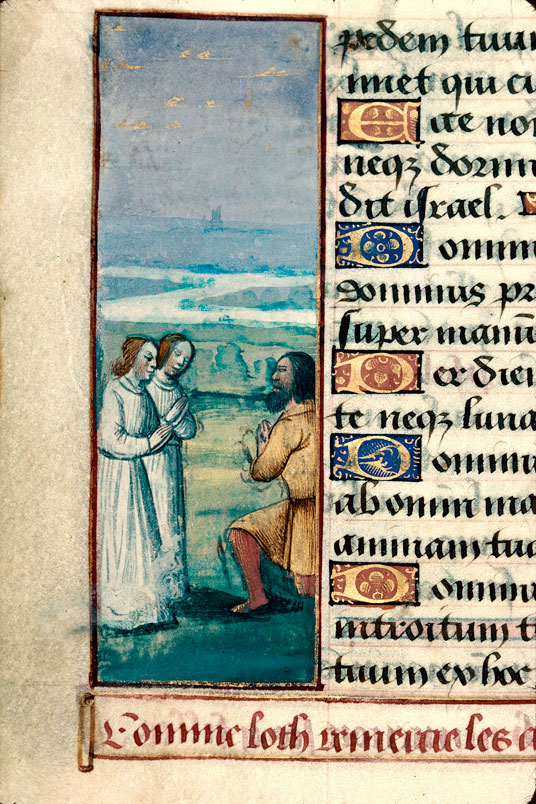 pedem tuum
miet qui cu
Ecce non
neqz dorm
dit israel. D
Domin
dominus pr
super manū
Per diem
te neqz luna
Domin
ab omni ma
animam tua
Domin
introitum t
tuum ex hoc
Comme loth remercie les a